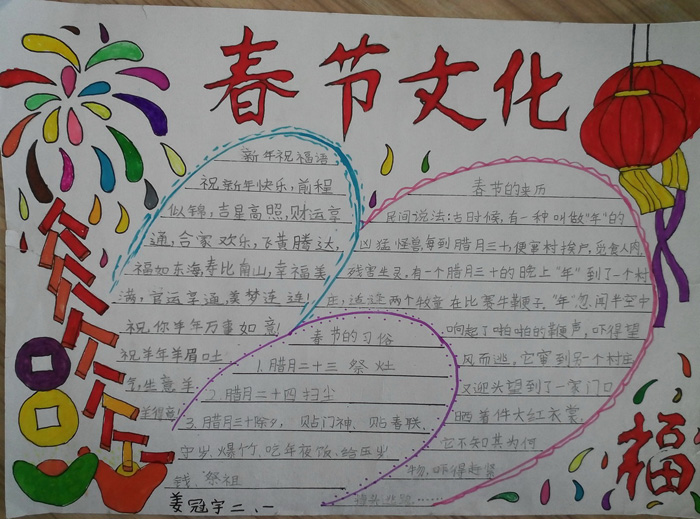 春节文化
新年祝福语
祝新年快乐，前程
似锦，吉星高照，财运亨
通，合家欢乐，飞黄腾达，
福如东海寿比南山，幸福美
满，官运亨通，美梦连连
祝你羊年万事如意
祝羊年羊眉吐
气，生意羊
羊得意
春节的来历
民间说法：古时候，有一种叫做"年"的
凶猛怪兽，每到腊月三十，便窜村挨户，觅食人肉，
残害生灵，有一个腊月三十的晚上"年"到了一个村
庄，适逢两个牧童在比赛牛鞭子，"年"忽闻半空中
响起了啪啪的鞭声，吓得望
风而逃，它窜到另一个村庄
又迎头望到了一家门口
晒着件大红衣裳，
它不知其为何
物，吓得赶紧
掉头逃跑......
春节的习俗
1.腊月二十三 祭灶
2.腊月二十四 扫尘
3.腊月三十除夕，贴门神、贴春联、
守岁、爆竹、吃年夜饭、给压岁
钱、祭祖
福
姜冠宇 二、一